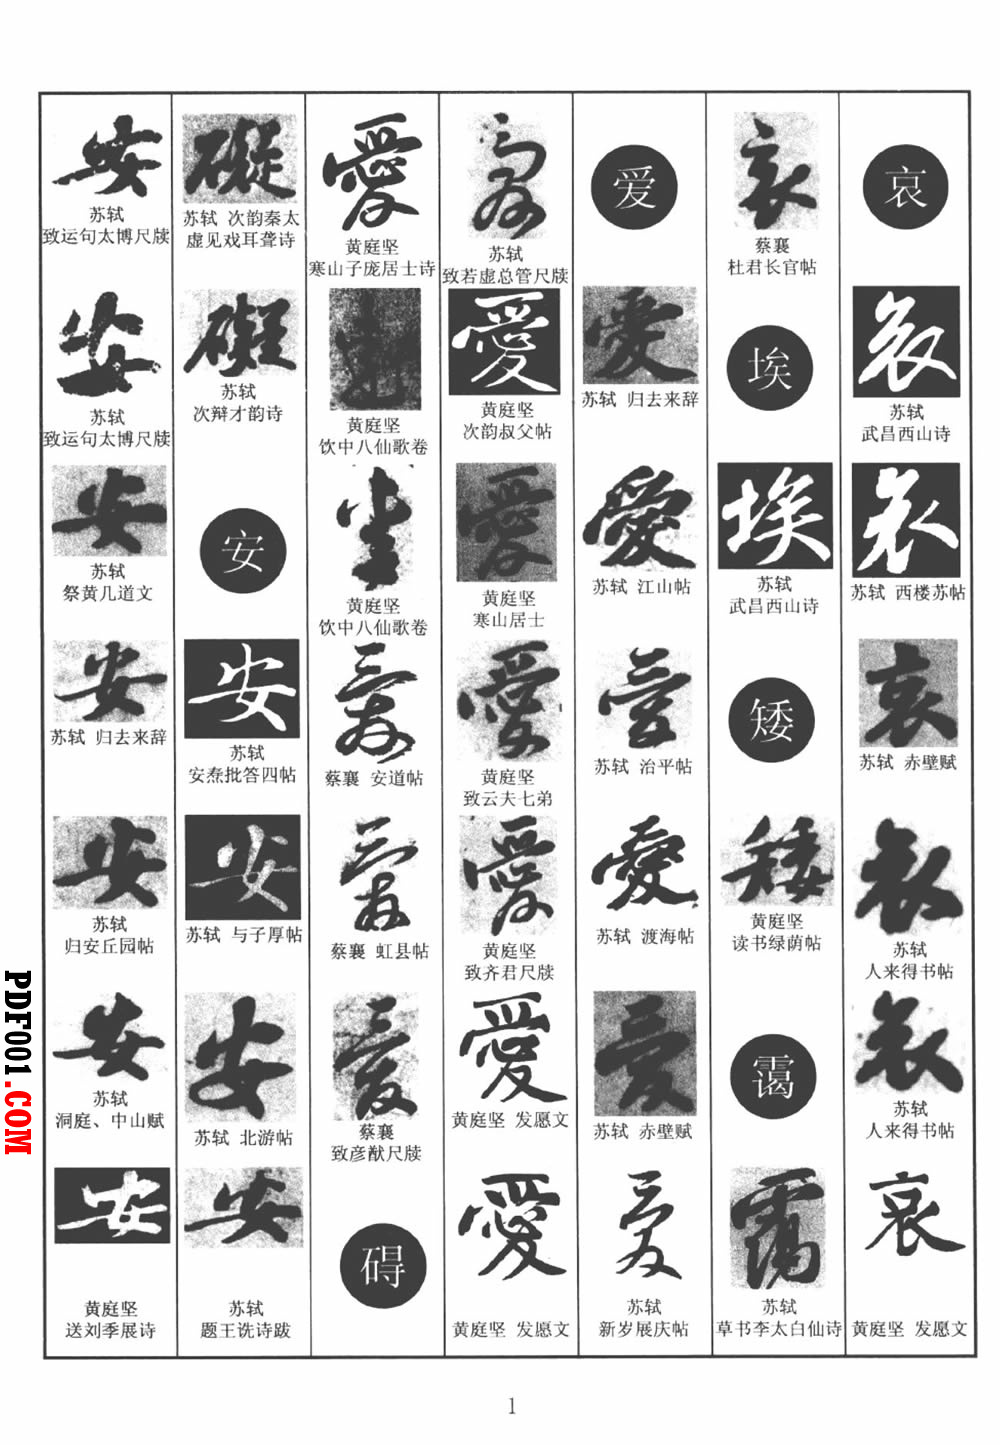 哀
哀
苏轼
武昌西山诗
哀
苏轼 西楼苏帖
哀
苏轼 赤壁赋
哀
苏轼
人来得书帖
哀
苏轼
人来得书帖
哀
黄庭坚 发愿文
哀
蔡襄
杜君长官帖
埃
埃
苏轼
武昌西山诗
矮
矮
黄庭坚
读书绿荫帖
霭
霭
苏轼
草书李太白仙诗
爱
愛
苏轼 归去来辞
愛
苏轼 江山帖
愛
苏轼 治平帖
愛
苏轼 渡海帖
愛
苏轼 赤壁赋
愛
苏轼
新岁展庆帖
愛
苏轼
致若虚总管尺牍
愛
黄庭坚
次韵叔父帖
愛
黄庭坚
寒山居士
愛
黄庭坚
致云夫七弟
愛
黄庭坚
致齐君尺牍
愛
黄庭坚 发愿文
愛
黄庭坚 发愿文
愛
黄庭坚
寒山子庞居士诗
黄庭坚
饮中八仙歌卷
黄庭坚
饮中八仙歌卷
愛
蔡襄 安道帖
愛
蔡襄 虹县帖
愛
蔡襄
致彦猷尺牍
碍
礙
苏轼 次韵秦太
虚见戏耳聋诗
礙
苏轼
次辩才韵诗
安
安
苏轼
安焘批答四帖
安
苏轼 与子厚帖
安
苏轼 北游帖
安
苏轼
题王诜诗跋
安
苏轼
致运句太博尺牍
安
苏轼
致运句太博尺牍
安
苏轼
祭黄几道文
安
苏轼 归去来辞
安
苏轼
归安丘园帖
安
苏轼
洞庭、中山赋
安
黄庭坚
送刘季展诗
1
PDF001.COM